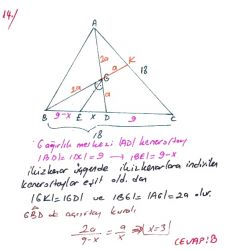 14./
A
2a
a
K
18
G
2a
a
B
9-x
E
x
D
9
C
18
Ağırlık merkezi |AD| kenarortay
|BD|=|DC|=9 → |BE|=9-x
ikizkenar üçgende ikizkenarlara indirilen
kenarortaylar eşit old. dan
|GK|=|GD| ve |BG|=|AG|=2a olur.
GBD de açıortay kuralı
2a/9-x = a/x ⇒ |x=3|
CEVAP:B